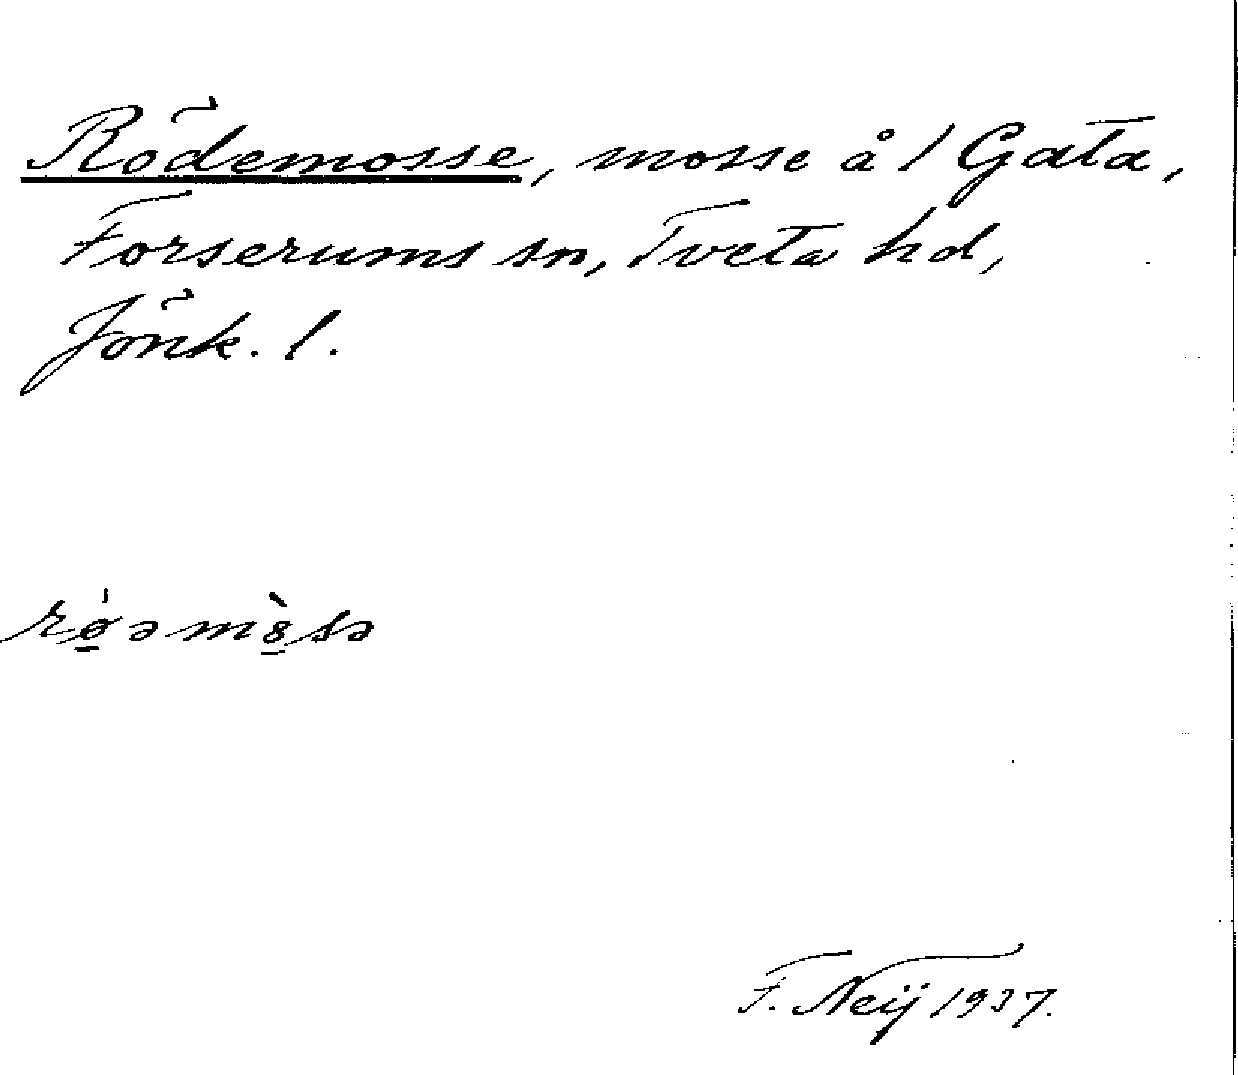 Rödemosse, mosse å / Gata,
Forserums sn, Tveta hd,
Jönk. l.
rǿ̠əmò̠sə
F. Neij 1937.